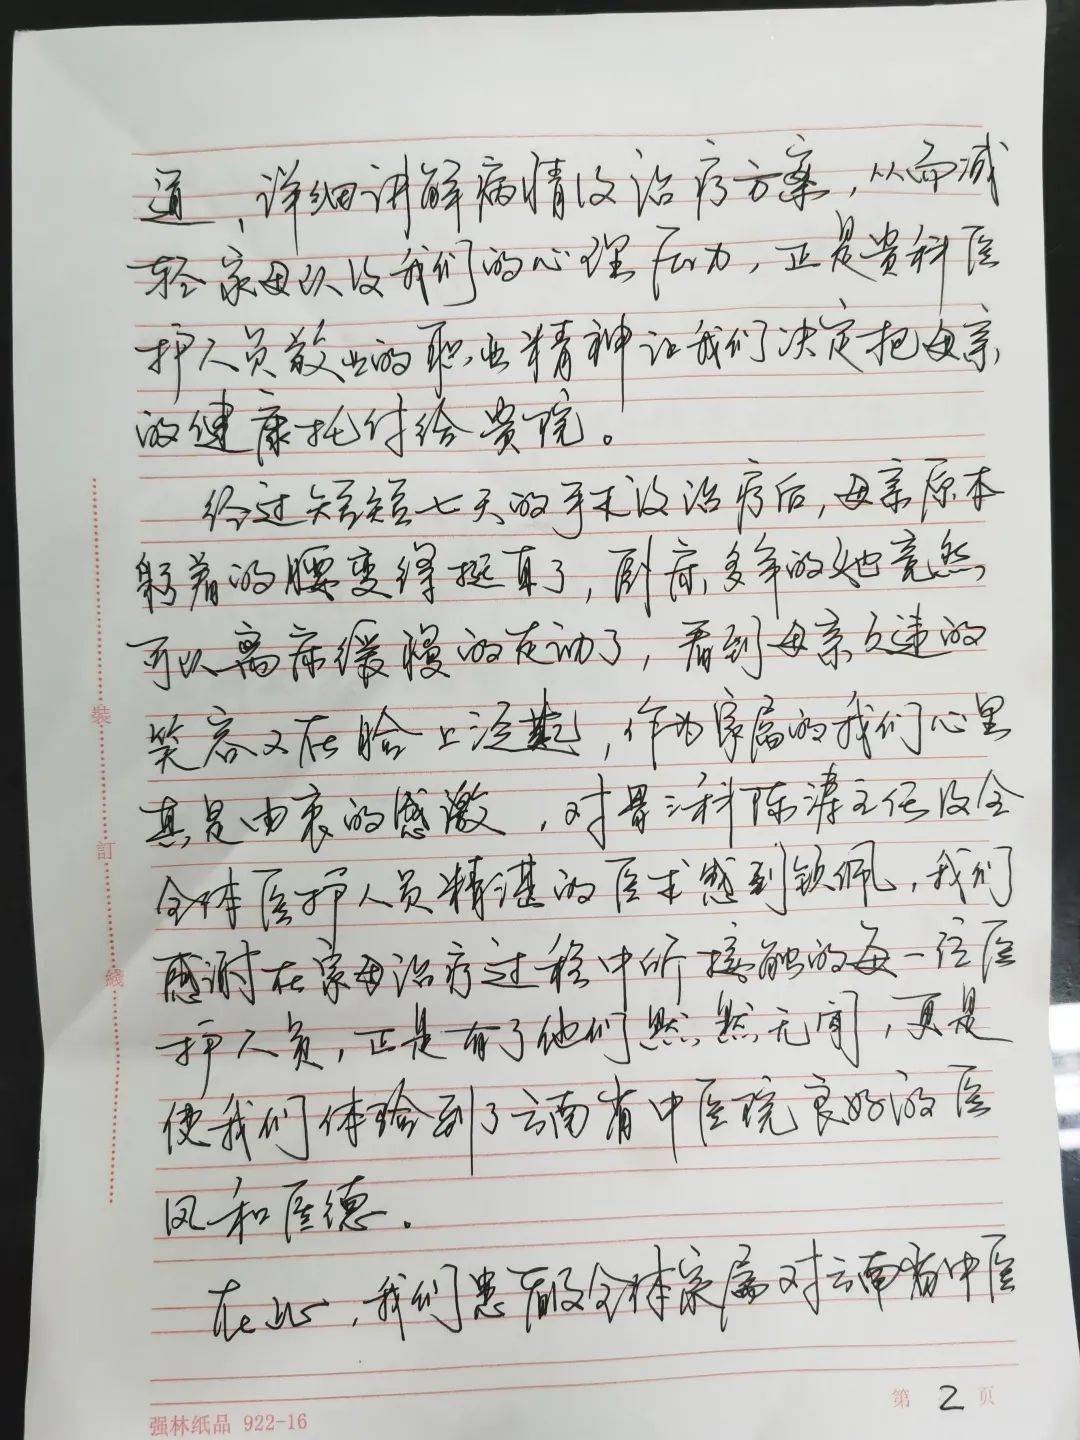 通，详细讲解病情及治疗方案，从而减
轻家母以及我们的心理压力，正是贵科医
护人员敬业的职业精神让我们决定把母亲
的健康托付给贵院。
经过短短七天的手术及治疗后，母亲原本
躬着的腰变得挺直了，卧床多年的她竟然
可以离床缓慢的走动了，看到母亲久违的
笑容又在脸上泛起，作为家属的我们心里
真是由衷的感激，对骨三科陈涛主任及全
全体医护人员精湛的医术感到钦佩，我们
感谢在家母治疗过程中所接触的每一位医
护人员，正是有了他们默默无闻，更是
使我们体验到了云南省中医院良好的医
风和医德。
在此，我们患者及全体家属对云南省中医
装
訂
綫
强林纸品 922-16
第 2 页